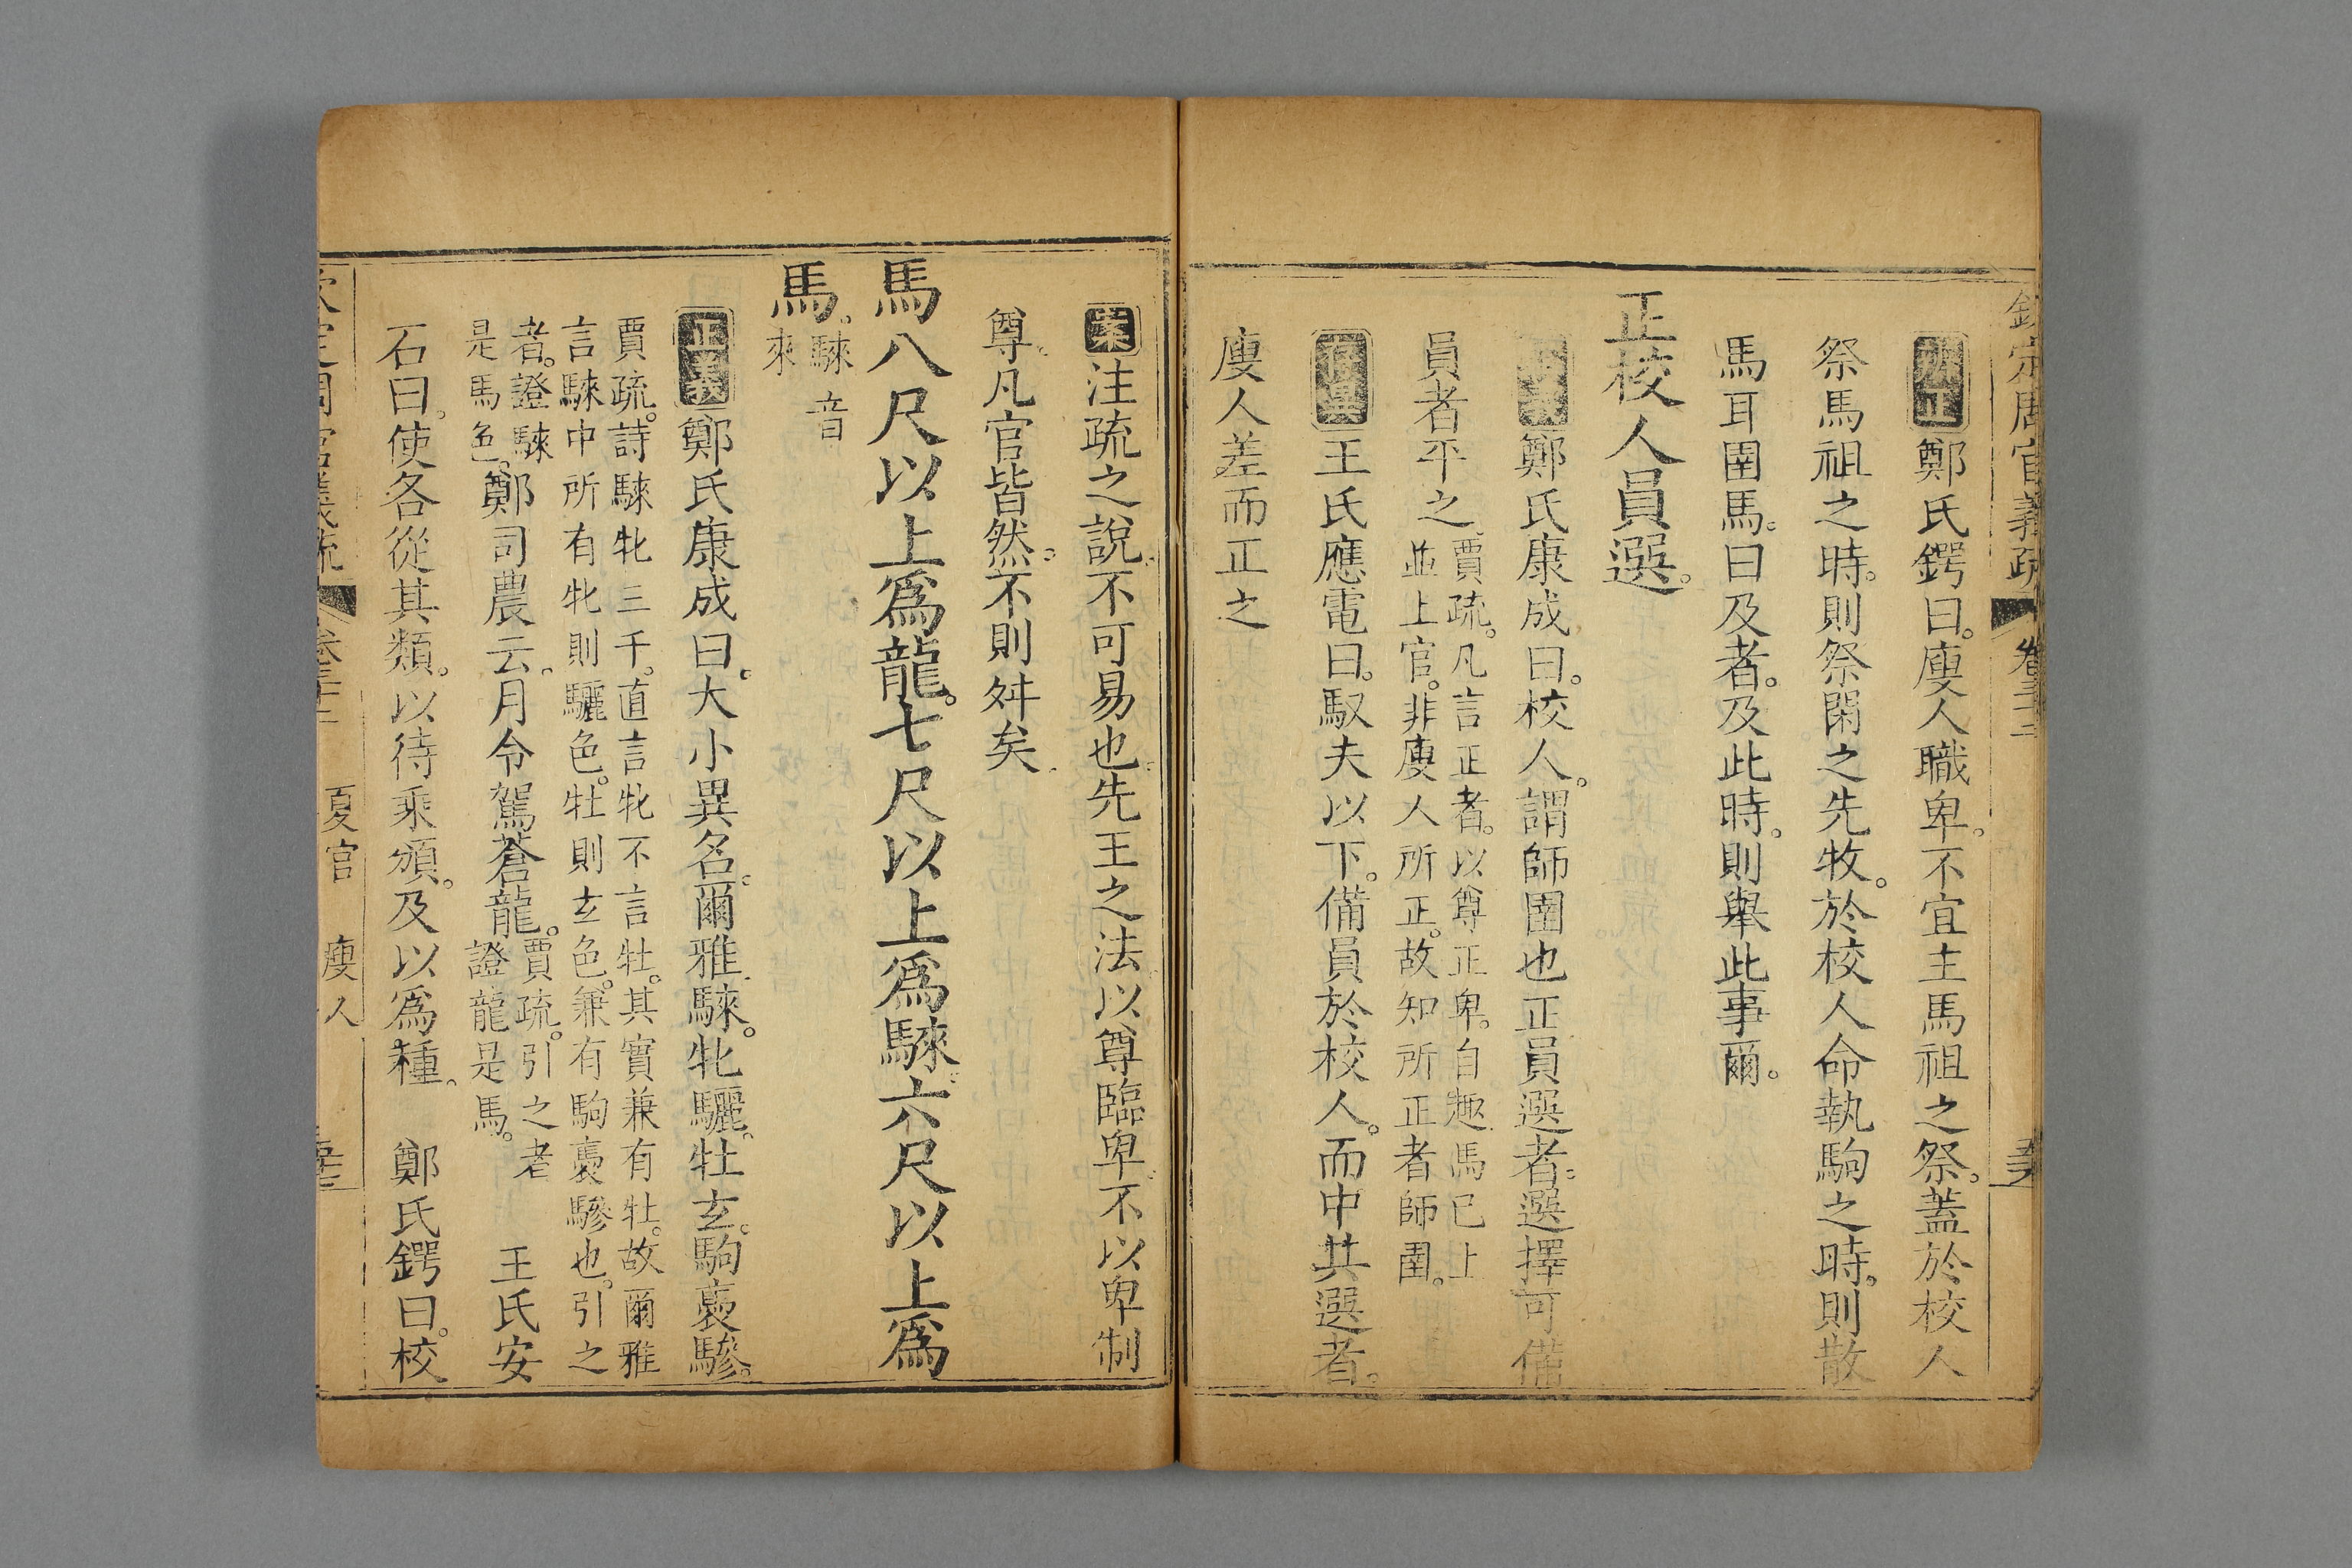 欽定周官義疏 卷三十二
辨正 鄭氏鍔曰廋人職卑不宜主馬祖之祭蓋於校人
祭馬祖之時則祭閑之先牧於校人命執駒之時則散
馬耳圉馬曰及者及此時則舉此事爾
正校人員選
正義 鄭氏康成曰校人謂師圉也正員選者選擇可備
員者平之 賈疏凡言正者以尊正卑自趣馬已上
並上官非廋人所正故知所正者師圉
存異 王氏應電曰馭夫以下備員於校人而中其選者
廋人差而正之
案 注疏之說不可易也先王之法以尊臨卑不以卑制
尊凡官皆然不則舛矣
馬八尺以上爲龍七尺以上爲騋六尺以上爲
馬 騋音
來
正義 鄭氏康成曰大小異名爾雅騋牝驪牡玄駒褭驂
賈疏詩騋牝三千直言牝不言牡其實兼有牡故爾雅
言騋中所有牝則驪色牡則玄色兼有駒褭驂也引之
者證騋
是馬色 鄭司農云月令駕蒼龍 賈疏引之者
證龍是馬 王氏安
石曰使各從其類以待乘頒及以爲種 鄭氏鍔曰校
欽定周官義疏 夏官 廋人